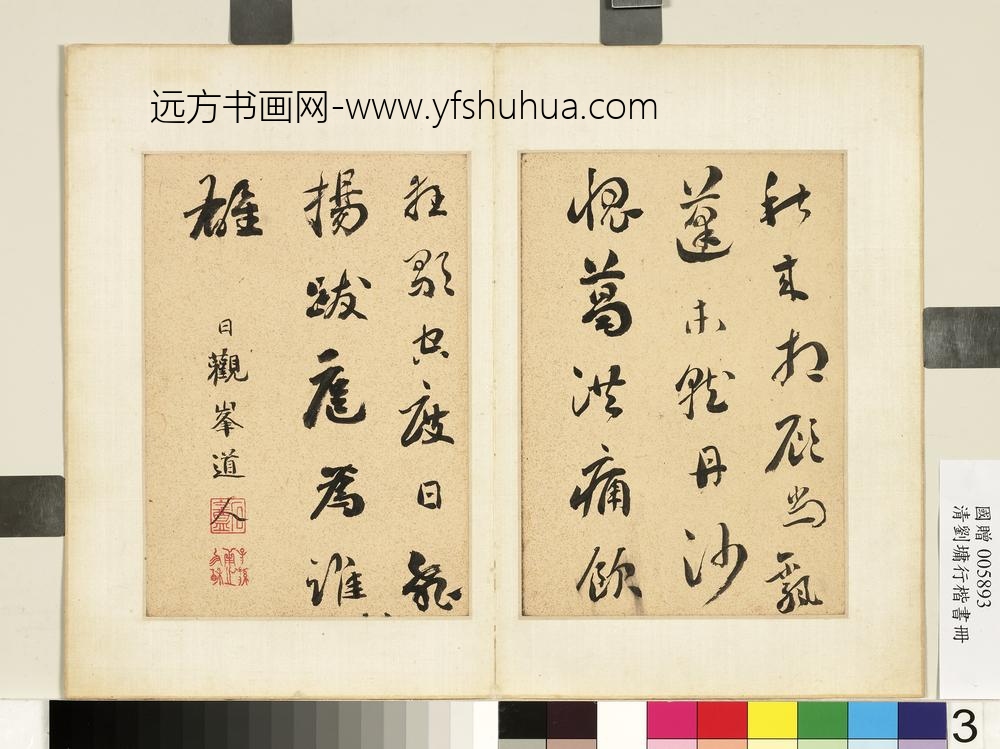 远方书画网-www.yfshuhua.com
秋来相顾尚飘
蓬未就丹沙
愧葛洪痛飲
狂歌空度日飛
揚跋扈為誰
雄
日觀峯道人
石盦
國贈 005893
清劉墉行楷書冊
3